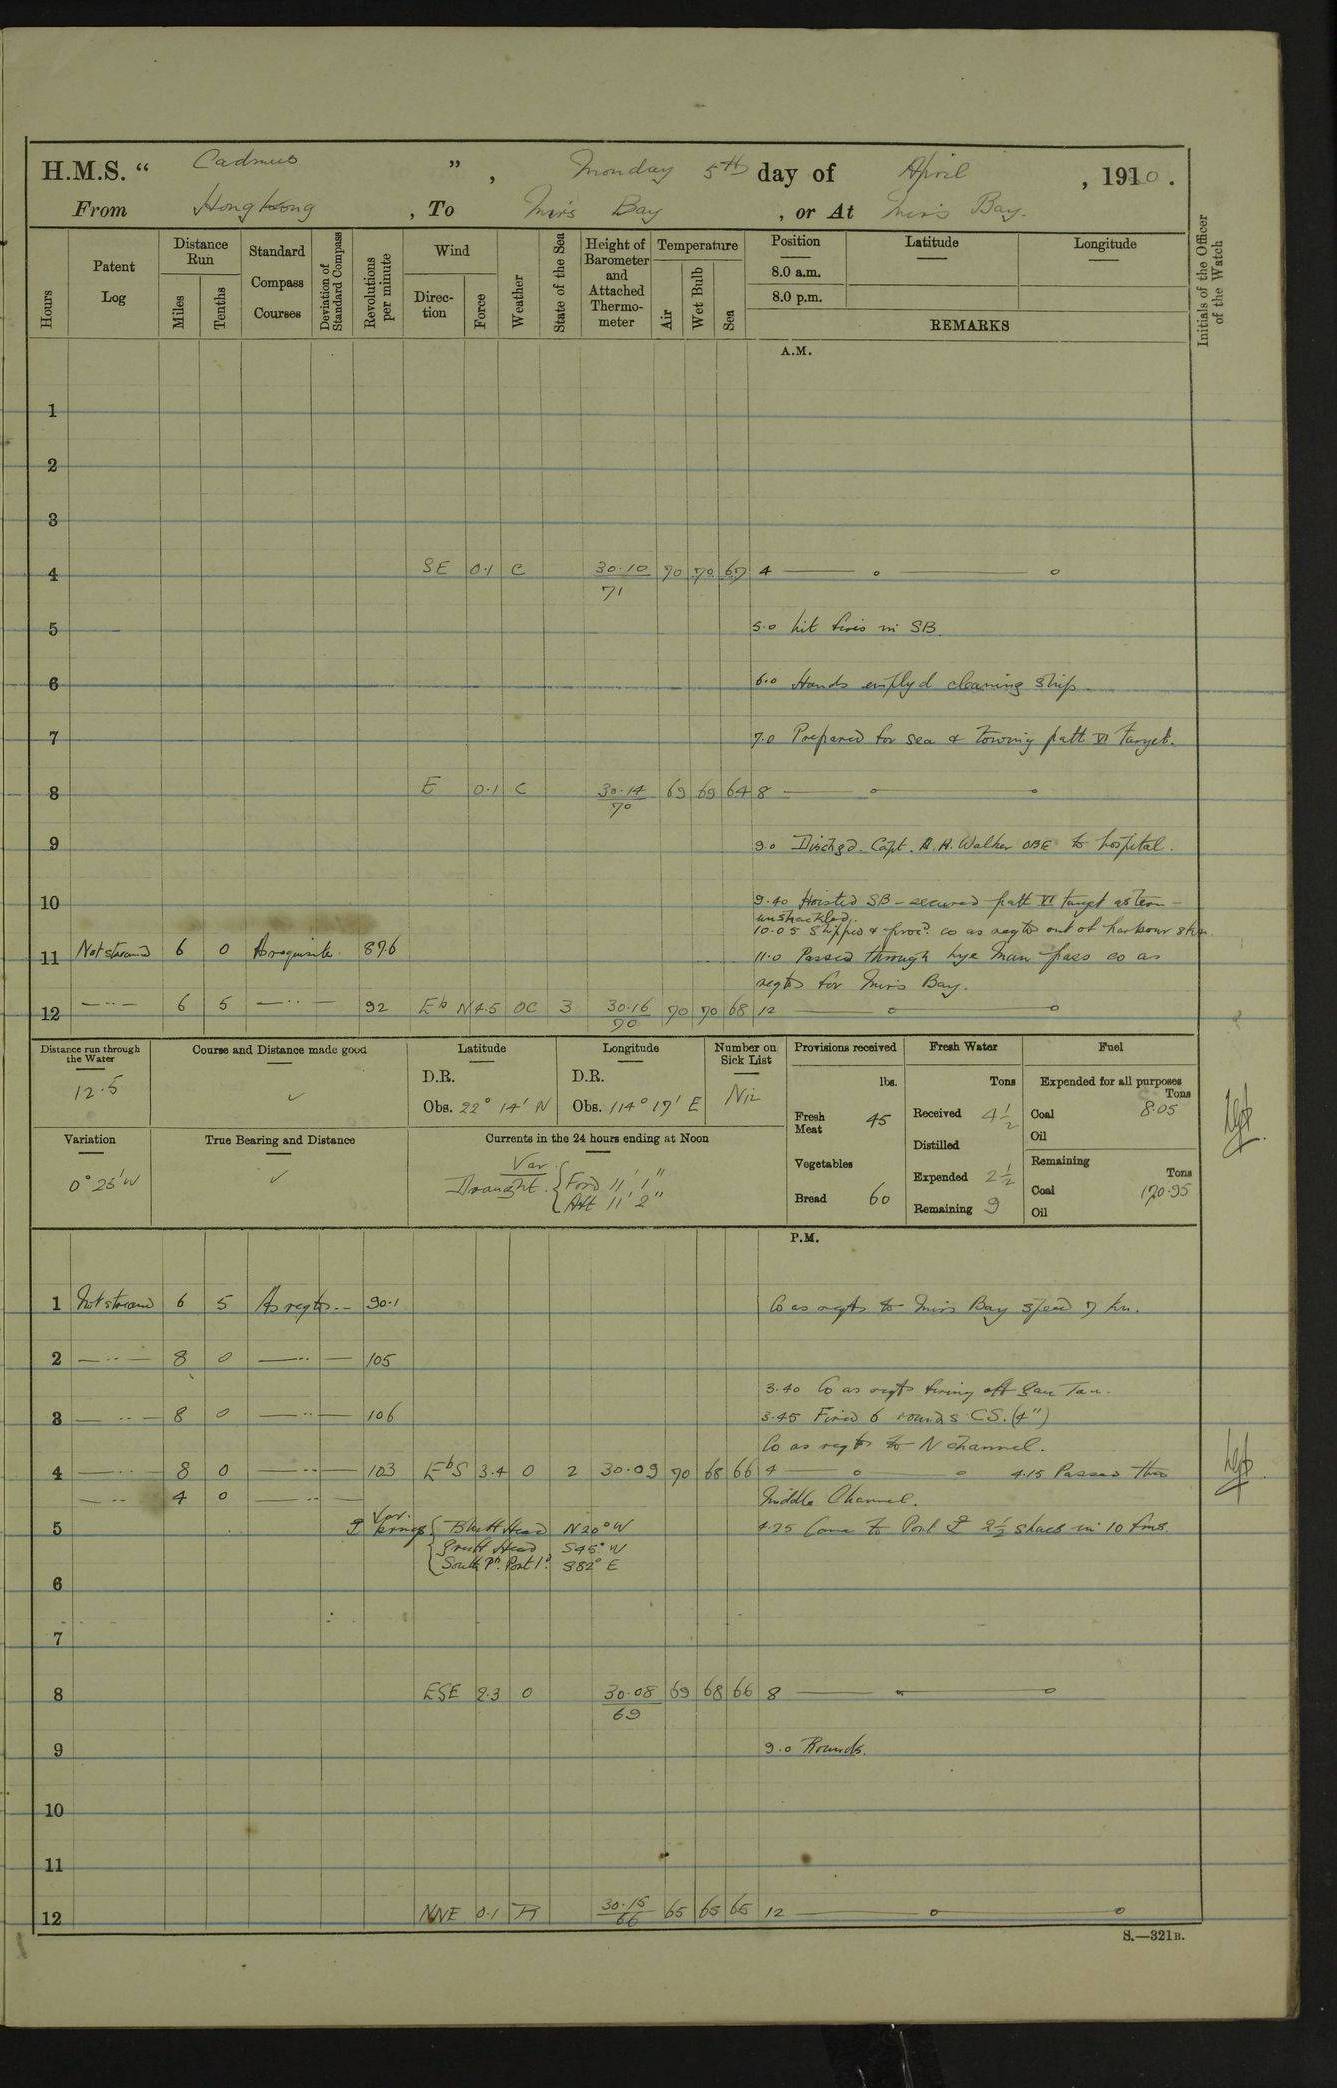 H.M.S. “ Cadmus ”, Monday 5th day of April, 1920.
From Hong Kong, To Mirs Bay, or At Mirs Bay.
Hours
Patent Log
Distance Run
Miles
Tenths
Standard Compass Courses
Deviation of Standard Compass
Revolutions per minute
Wind
Direction
Force
Weather
State of the Sea
Height of Barometer and Attached Thermometer
Temperature
Air
Wet Bulb
Sea
Position
8.0 a.m.
8.0 p.m.
Latitude
Longitude
REMARKS
Initials of the Officer of the Watch
A.M.
1
2
3
4 SE 0.1 C 30.10 70 70 67 4
71
5 5.0 Lit fires in SB.
6 6.0 Hands employd cleaning ship.
7 7.0 Prepared for sea & towing patt VI target.
8 E 0.1 C 30.14 69 69 64 8
70
9 9.0 Dischgd. Capt. A. H. Walker OBE to hospital.
10 9.40 Hoisted SB - secured patt VI target astern -
unshackled.
10.05 Slipped & proc'd. co as reqts out of harbour 8 kn.
11 Not streamed 6 0 As requisite. 87.6 11.0 Passed through Lye Mun pass co as
reqts for Mirs Bay.
12 6 5 92 EbN 4.5 OC 3 30.16 70 70 68 12
70
Distance run through the Water
12.5
Course and Distance made good
Latitude
D.R.
Obs. 22° 14' N
Longitude
D.R.
Obs. 114° 17' E
Number on Sick List
Nil
Variation
0° 25' W
True Bearing and Distance
Currents in the 24 hours ending at Noon
Var
Draught. Ford 11' 1"
Aft 11' 2"
Provisions received
lbs.
Fresh Meat 45
Vegetables
Bread 60
Fresh Water
Tons
Received 4½
Distilled
Expended 2½
Remaining 9
Fuel
Expended for all purposes
Tons
Coal 8.05
Oil
Remaining
Tons
Coal 170.95
Oil
P.M.
1 Not streamed 6 5 As reqts. 90.1 Co as reqts to Mirs Bay speed 7 kn.
2 8 0 105
3.40 Co as reqts firing off Gau Tau.
3 8 0 106 3.45 Fired 6 rounds C.S. (4")
Co as reqts to N Channel.
4 8 0 103 EbS 3.4 0 2 30.09 70 68 66 4 4.15 Passed thro
4 0 Middle Channel.
5 Bluff Head N 20° W 4.25 Came to Port 2½ shacs in 10 fms.
Gruff Head S 45° W
South Pt. Port Id. S 82° E
6
7
8 ESE 2.3 0 30.08 69 68 66 8
69
9 9.0 Rounds.
10
11
12 NNE 0.1 30.15 65 65 65 12
66
S.—321B.